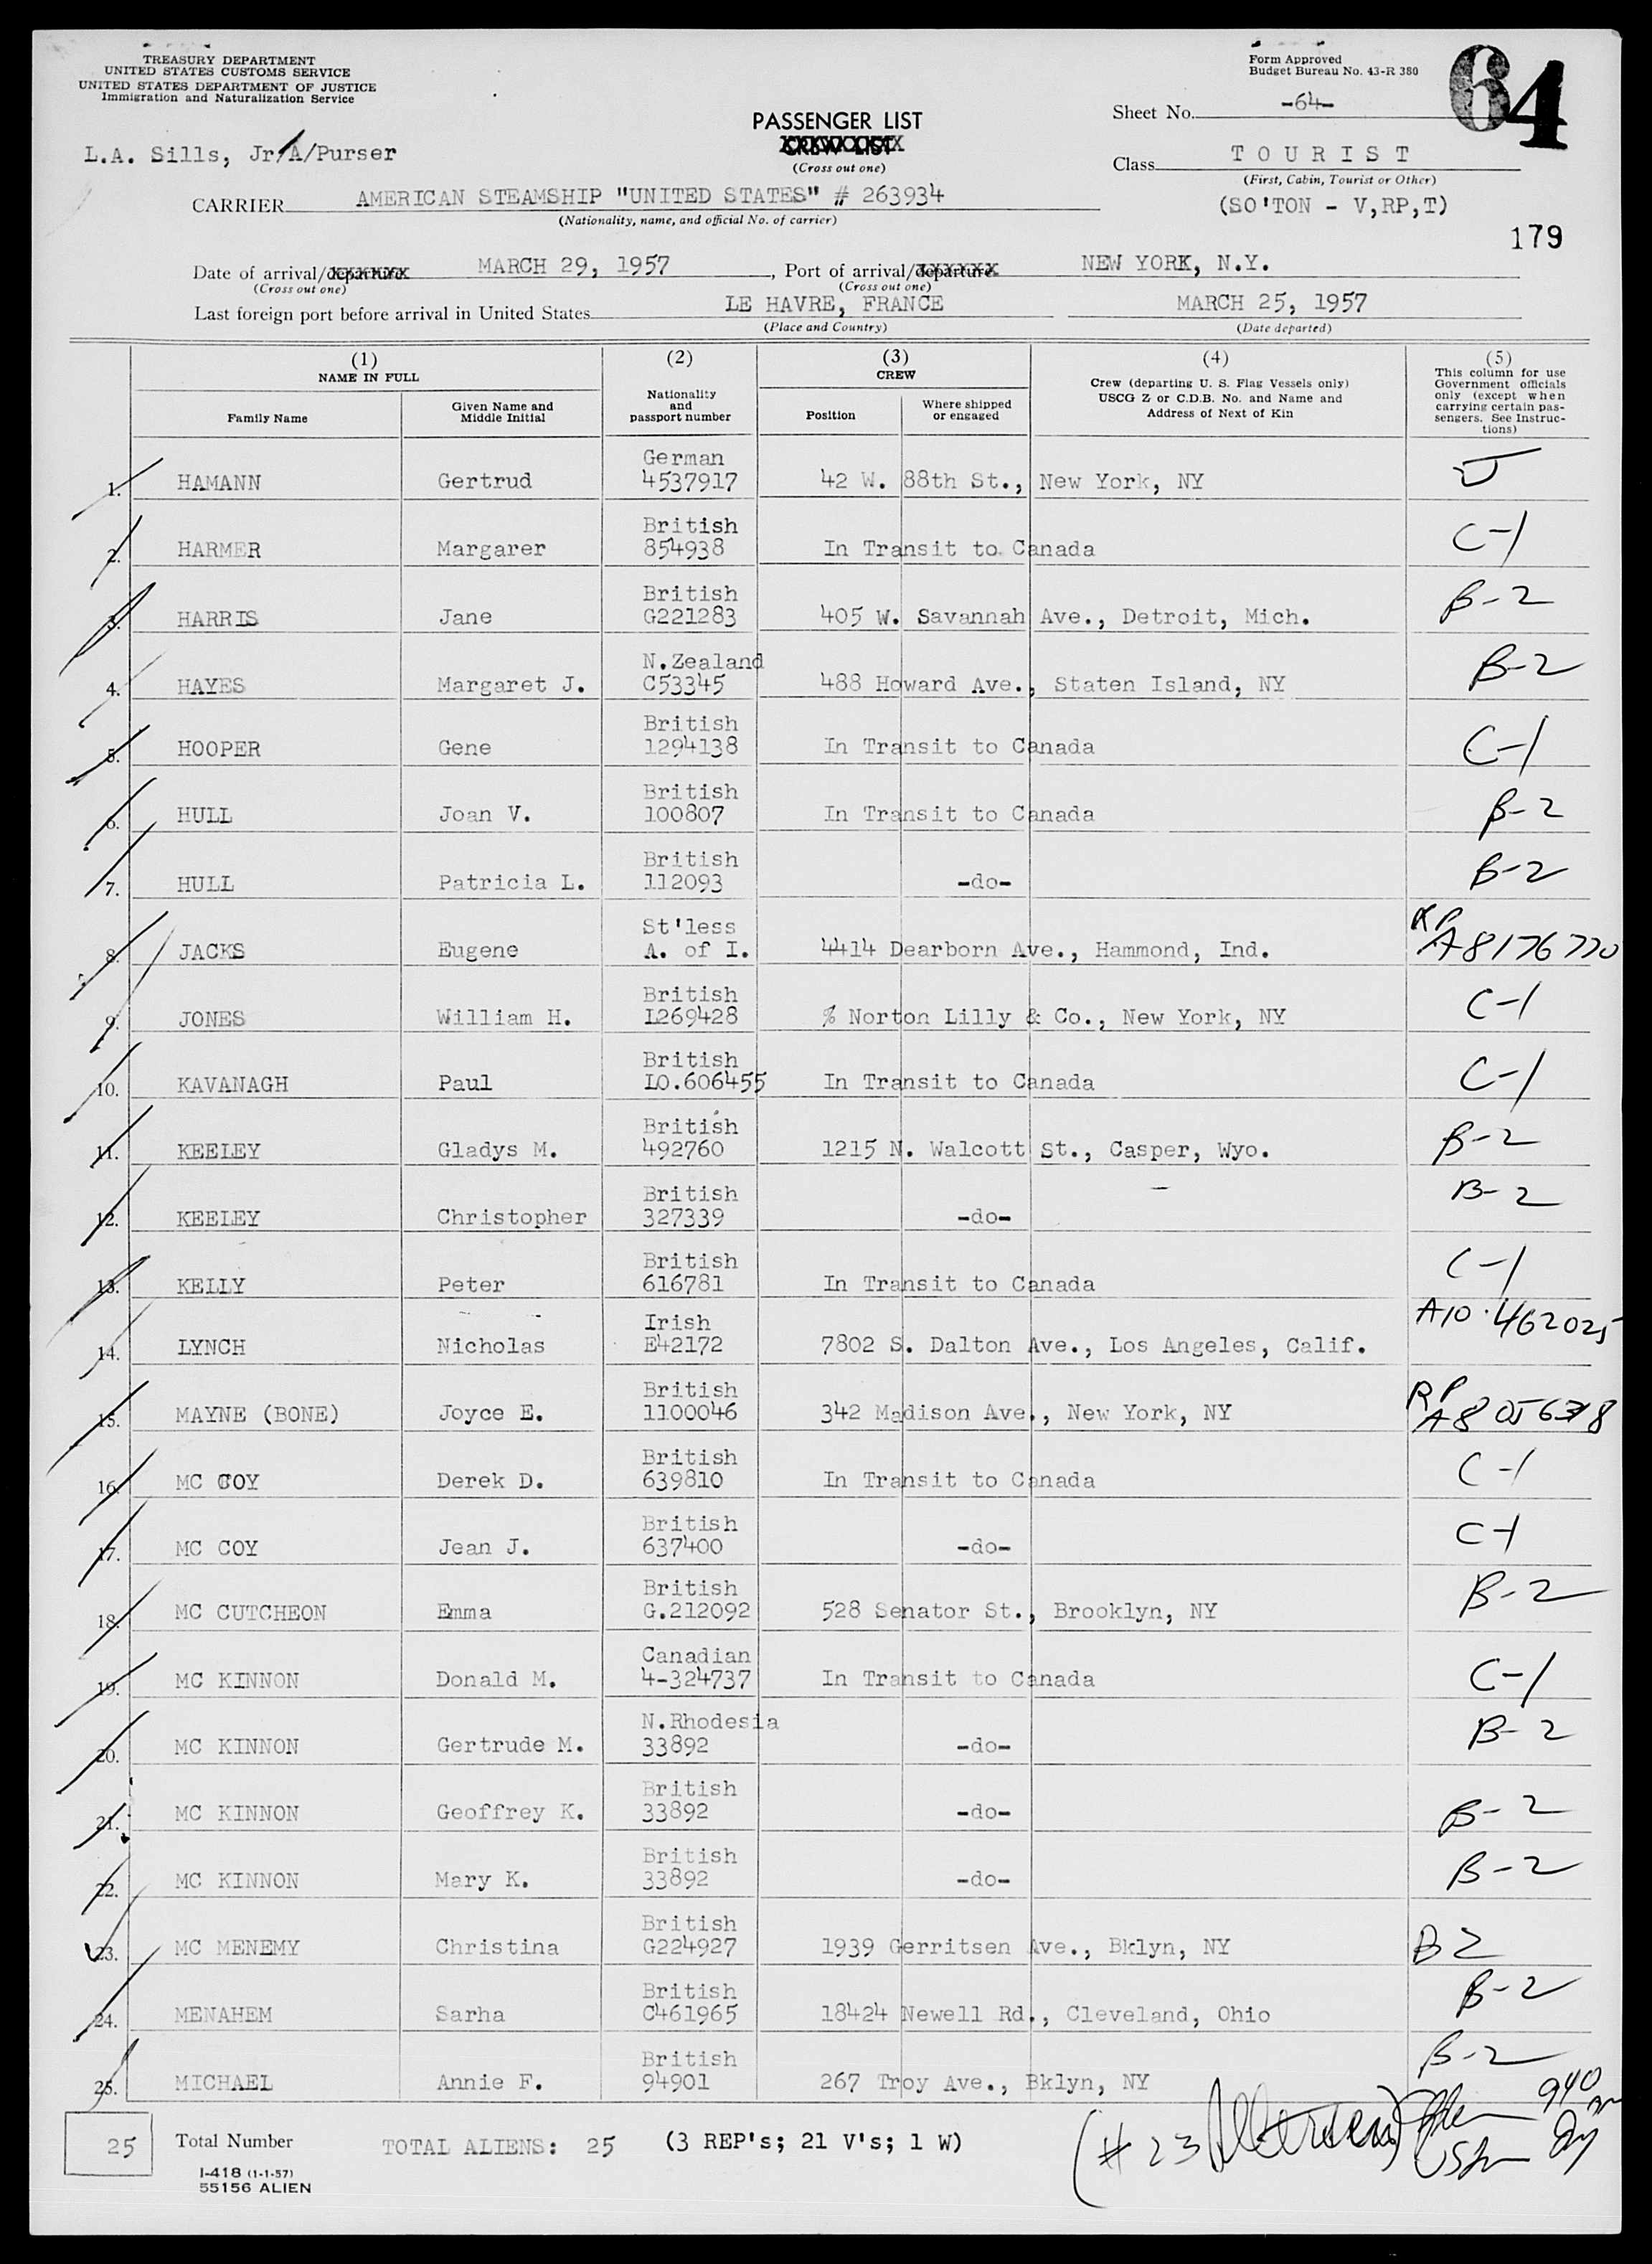 TREASURY DEPARTMENT
UNITED STATES CUSTOMS SERVICE
UNITED STATES DEPARTMENT OF JUSTICE
Immigration and Naturalization Service
Form Approved
Budget Bureau No. 43-R 380
64
L.A. Sills, Jr/A/Purser
PASSENGER LIST
CREW LIST
(Cross out one)
Sheet No. -64-
Class TOURIST
(First, Cabin, Tourist or Other)
CARRIER AMERICAN STEAMSHIP "UNITED STATES" # 263934
(Nationality, name, and official No. of carrier)
(SO'TON - V,RP,T)
179
Date of arrival/departure MARCH 29, 1957, Port of arrival/departure NEW YORK, N.Y.
(Cross out one) (Cross out one)
Last foreign port before arrival in United States LE HAVRE, FRANCE MARCH 25, 1957
(Place and Country) (Date departed)
(1) NAME IN FULL
Family Name
Given Name and Middle Initial
(2) Nationality and passport number
(3) CREW
Position
Where shipped or engaged
(4) Crew (departing U. S. Flag Vessels only) USCG Z or C.D.B. No. and Name and Address of Next of Kin
(5) This column for use Government officials only (except when carrying certain passengers. See Instructions)
1. HAMANN Gertrud German 4537917 42 W. 88th St., New York, NY J
2. HARMER Margarer British 854938 In Transit to Canada C-1
3. HARRIS Jane British G221283 405 W. Savannah Ave., Detroit, Mich. B-2
4. HAYES Margaret J. N.Zealand C53345 488 Howard Ave., Staten Island, NY B-2
5. HOOPER Gene British 1294138 In Transit to Canada C-1
6. HULL Joan V. British 100807 In Transit to Canada B-2
7. HULL Patricia L. British 112093 -do- B-2
8. JACKS Eugene St'less A. of I. 4414 Dearborn Ave., Hammond, Ind. RP A8176770
9. JONES William H. British L269428 % Norton Lilly & Co., New York, NY C-1
10. KAVANAGH Paul British LO.606455 In Transit to Canada C-1
11. KEELEY Gladys M. British 492760 1215 N. Walcott St., Casper, Wyo. B-2
12. KEELEY Christopher British 327339 -do- B-2
13. KELLY Peter British 616781 In Transit to Canada C-1
14. LYNCH Nicholas Irish E42172 7802 S. Dalton Ave., Los Angeles, Calif. A10·462025
15. MAYNE (BONE) Joyce E. British 1100046 342 Madison Ave., New York, NY RP
16. MC COY Derek D. British 639810 In Transit to Canada C-1
17. MC COY Jean J. British 637400 -do- C-1
18. MC CUTCHEON Emma British G.212092 528 Senator St., Brooklyn, NY B-2
19. MC KINNON Donald M. Canadian 4-324737 In Transit to Canada C-1
20. MC KINNON Gertrude M. N.Rhodesia 33892 -do- B-2
21. MC KINNON Geoffrey K. British 33892 -do- B-2
22. MC KINNON Mary K. British 33892 -do- B-2
23. MC MENEMY Christina British G224927 1939 Gerritsen Ave., Bklyn, NY B2
24. MENAHEM Sarha British C461965 18424 Newell Rd., Cleveland, Ohio B-2
25. MICHAEL Annie F. British 94901 267 Troy Ave., Bklyn, NY B-2
25 Total Number TOTAL ALIENS: 25 (3 REP's; 21 V's; 1 W)
(#23
940
I-418 (1-1-57)
55156 ALIEN